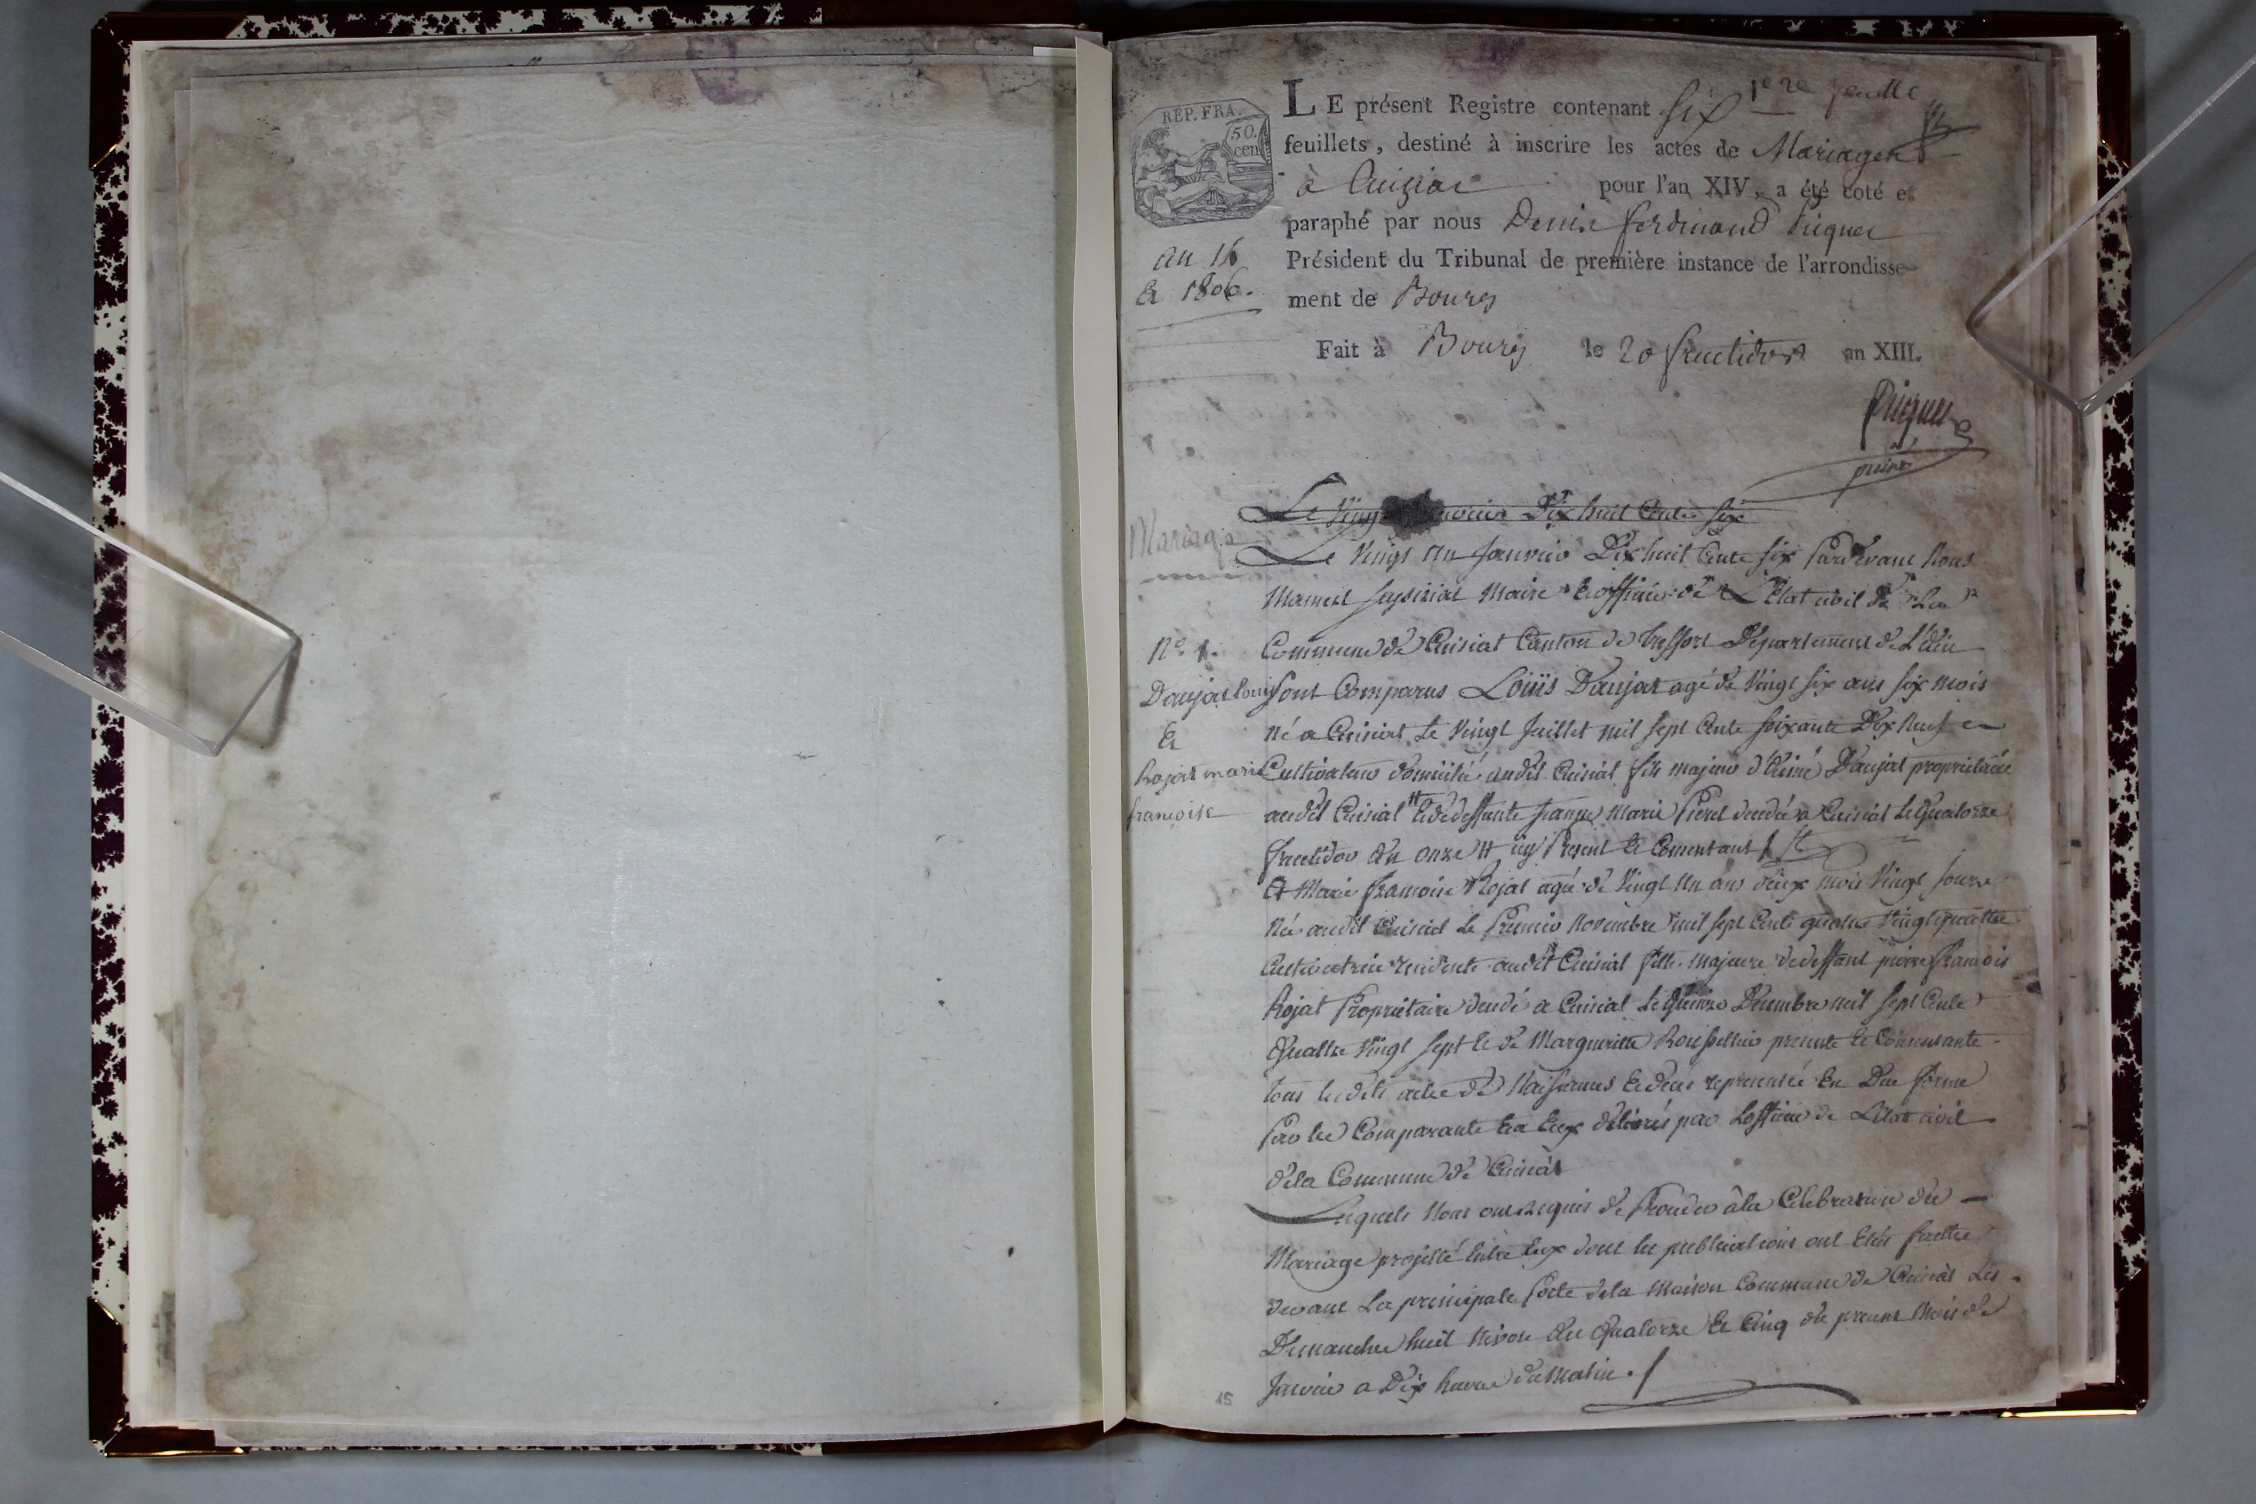 1ere feuille
LE présent Registre contenant six
feuillets, destiné à inscrire les actes de Mariages
à Cuiziat pour l'an XIV, a été coté et
paraphé par nous Denis ferdinand Piquet
Président du Tribunal de première instance de l'arrondisse-
ment de Bourg
Fait à Bourg le 20 fructidor an XIII.
REP. FRA.
50.
cen
an 14
Et 1806.
Piquet
Le Vingt janvier Dix huit Cents six
Mariage
Le Vingt un Janvier Dix huit Cents six Pardevant Nous
Maire Et officier de L'Etat civil de La
Commune de Cuisiat Canton de treffort Département de L'ain
sont Comparus Loüis Daujat agé de Vingt six ans six mois
né a Cuisiat Le Vingt Juillet mil sept Cents soixante Dix Neuf
Cultivateur domicilié audit Cuisiat fils majeur d'Aimé Daujat propriétaire
audit Cuisiat # Et de deffunte Jeanne Marie décédée a Cuisiat Le Quatorze
fructidor An onze # icy Present Et Consentant
N° 1.
Daujat Louis
Et
Rojat marie
francoise
Et Marie francoise Rojat agée de Vingt Un ans deux mois Vingt Jours
Née audit Cuisiat Le Premier Novembre mil sept Cents quatre Vingt quattre
Cultivatrice residente audit Cuisiat fille majeure de deffunt pierre francois
Rojat Proprietaire decedé a Cuisiat Le Quinze Decembre mil sept Cents
Quattre Vingt sept Et de Margueritte presente Et Consentante
tous lesdits actes de Naissances Et deces representés En Due forme
Par les Comparants Et a Eux délivrés par L'officier de L'Etat civil
de la Commune de Cuisiat
Lesquels Nous ont Requis de Proceder à la Celebration du
Mariage projetté Entre Eux dont les publications ont Etés faittes
devant La principale Porte de la Maison Commune de Cuisiat Les
Dimanches huit Nivose An Quatorze Et Cinq du present Mois de
Janvier a Dix heures du Matin.
15